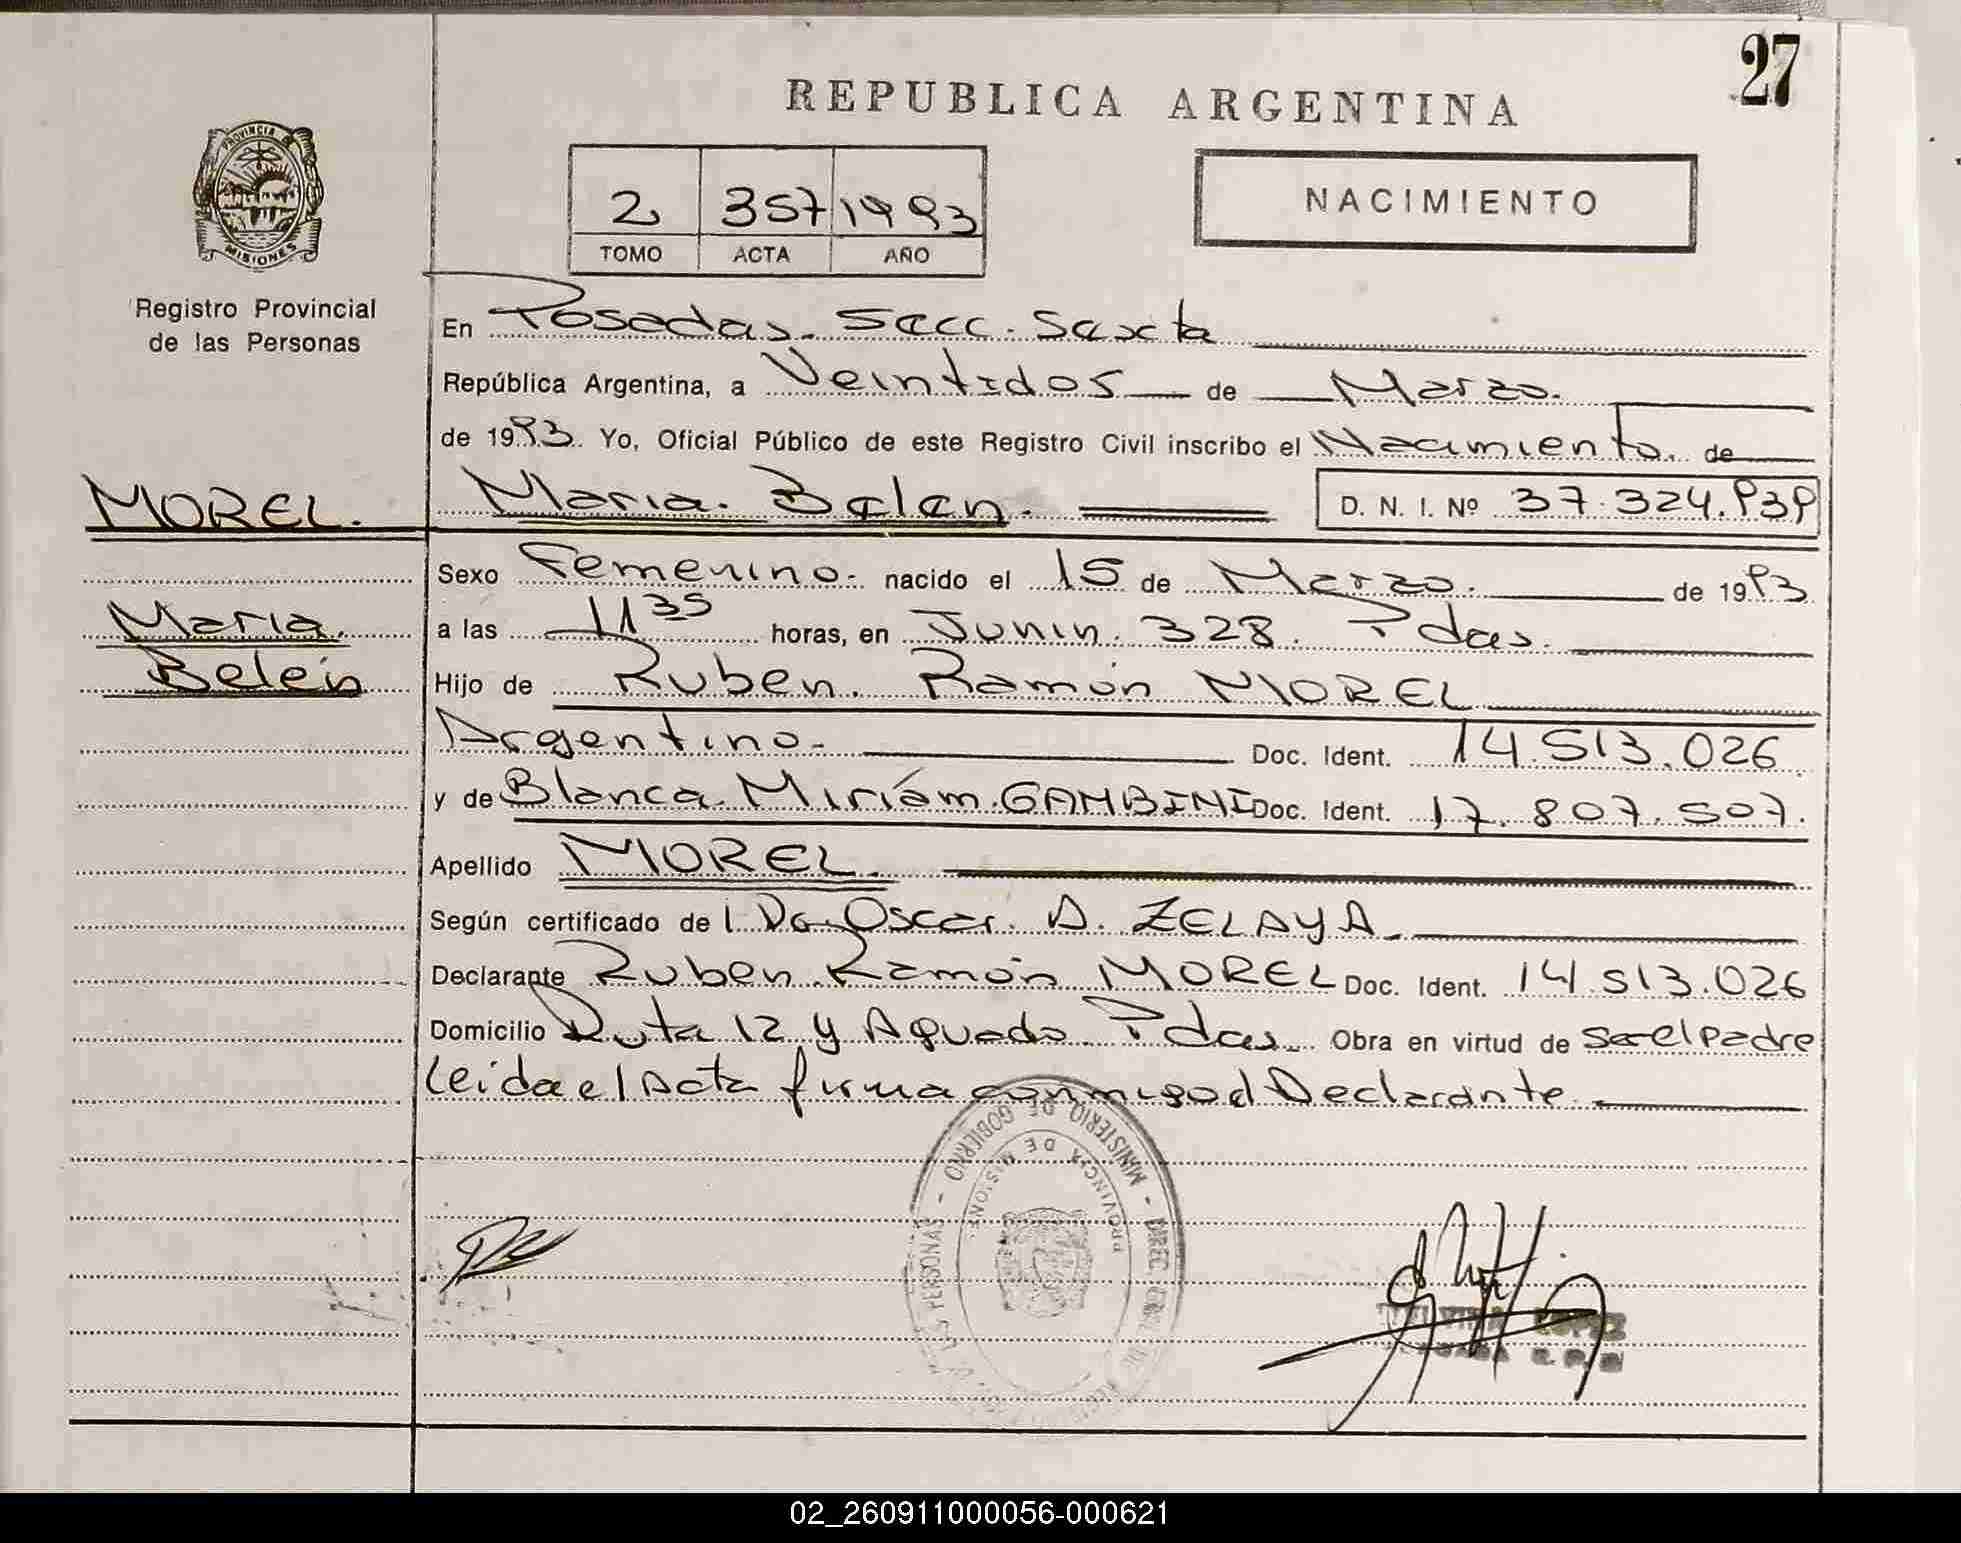 27
REPUBLICA ARGENTINA
NACIMIENTO
2 357 1993
TOMO ACTA AÑO
PROVINCIA DE
MISIONES
Registro Provincial
de las Personas
En Posadas. Secc. Sexta
República Argentina, a Veintidos de Marzo.
de 1993. Yo, Oficial Público de este Registro Civil inscribo el Nacimiento. de
MOREL.
Maria. Belen. D. N. I. Nº 37.324.939
Sexo Femenino. nacido el 15 de Marzo. de 1993
Maria.
a las 11 35 horas, en Junin. 328. Pdas.
Belén
Hijo de Ruben. Ramón MOREL
Argentino. Doc. Ident. 14.513.026
y de Blanca Miriám. GAMBINI Doc. Ident. 17.807.507.
Apellido MOREL.
Según certificado de l Dr. Oscar. A. ZELAYA.
Declarante Ruben. Ramón MOREL Doc. Ident. 14.513.026
Domicilio Ruta 12 y Aguado Pdas. Obra en virtud de Ser el padre
Leida el Acta firma conmigo el Declarante.
MINISTERIO DE GOBIERNO - DIREC. GRAL. DE LAS PERSONAS
PROVINCIA DE MISIONES
LOPEZ
02_260911000056-000621